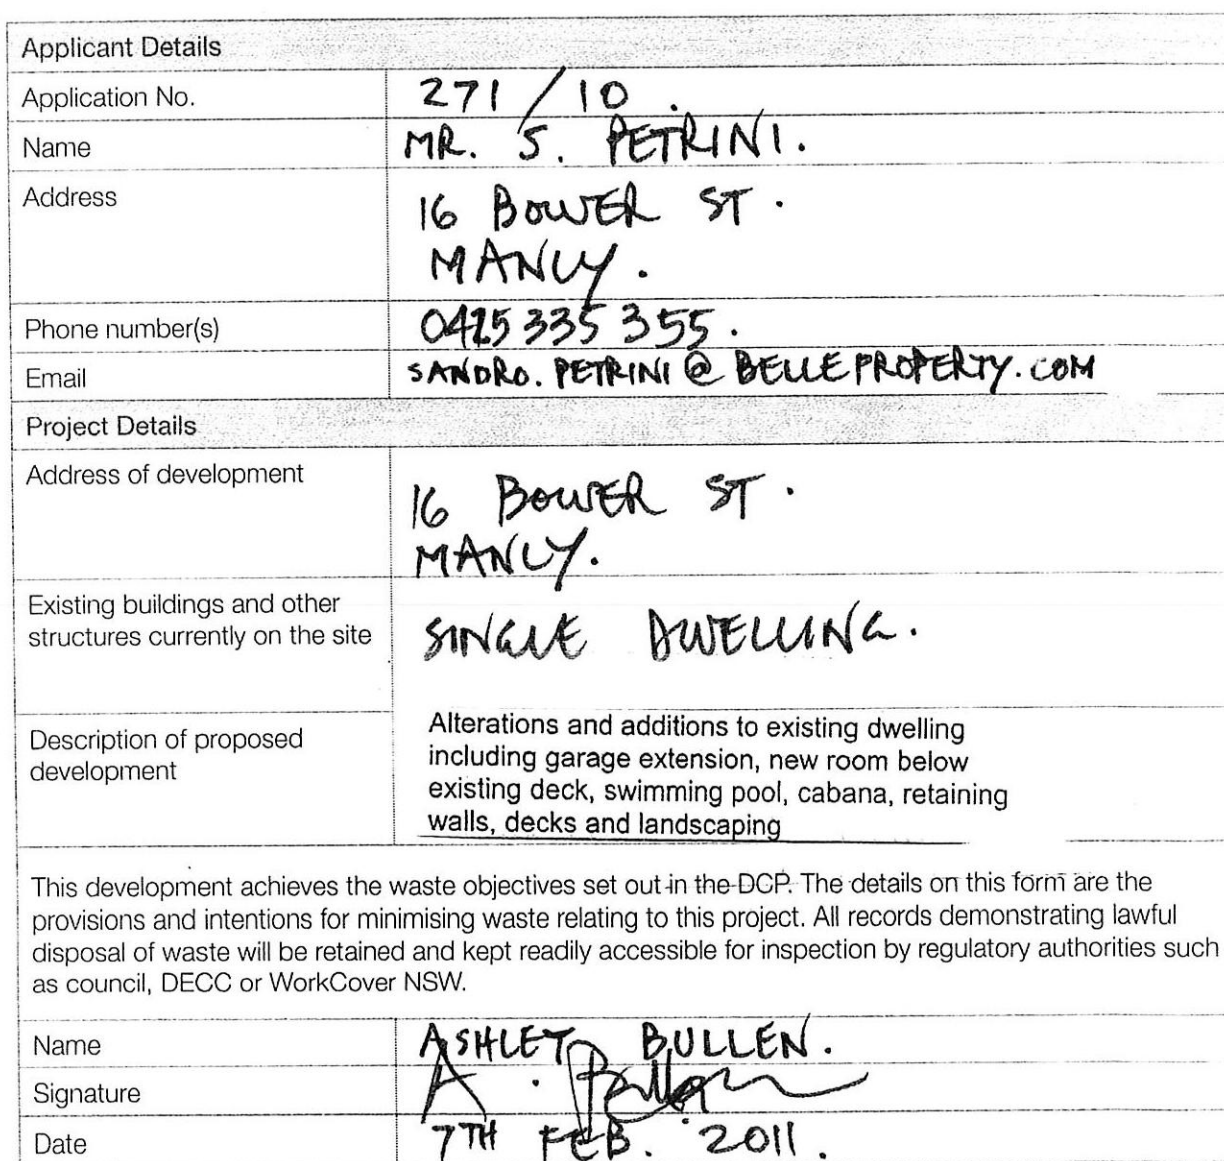 Applicant Details
Application No. 271/10.
Name MR. S. PETRINI.
Address 16 BOWER ST.
MANLY.
Phone number(s) 0415 335 355.
Email SANDRO.PETRINI@BELLEPROPERTY.COM
Project Details
Address of development 16 BOWER ST.
MANLY.
Existing buildings and other
structures currently on the site SINGLE DWELLING.
Description of proposed
development
Alterations and additions to existing dwelling
including garage extension, new room below
existing deck, swimming pool, cabana, retaining
walls, decks and landscaping
This development achieves the waste objectives set out in the DCP. The details on this form are the
provisions and intentions for minimising waste relating to this project. All records demonstrating lawful
disposal of waste will be retained and kept readily accessible for inspection by regulatory authorities such
as council, DECC or WorkCover NSW.
Name ASHLEY BULLEN.
Signature A. Bullen
Date 7TH FEB. 2011.